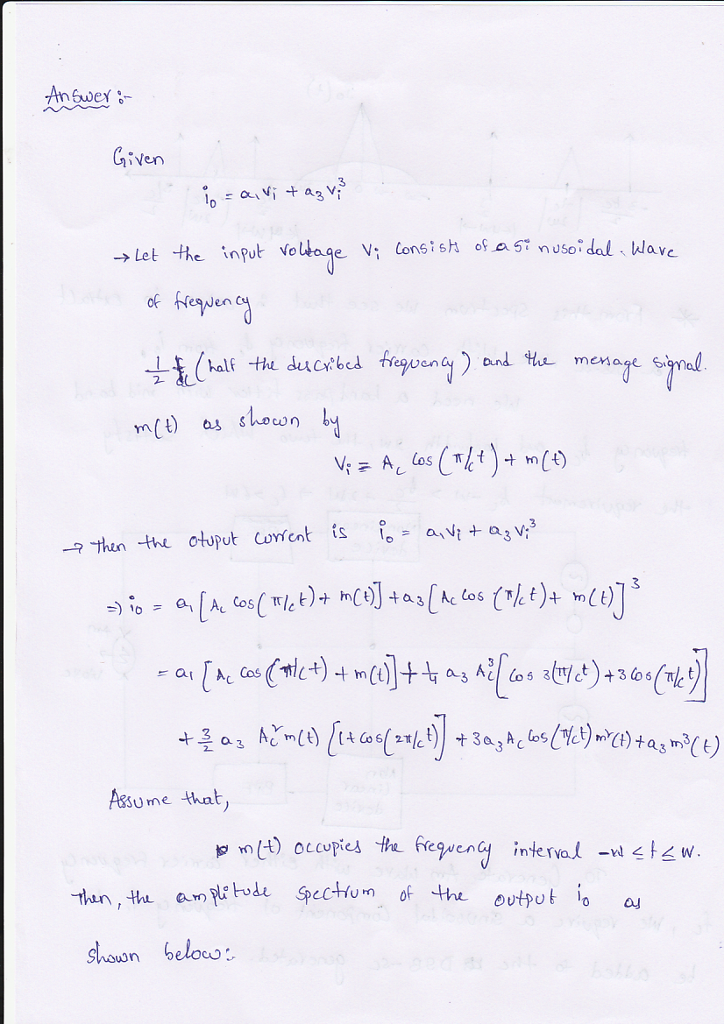 Answer :-
Given
i₀ = a₁vᵢ + a₃vᵢ³
→ Let the input voltage vᵢ consists of a sinusoidal wave
of frequency
1/2 fc (half the described frequency) and the message signal.
m(t) as shown by
Vᵢ = Ac cos(πfct) + m(t)
→ Then the otuput current is i₀ = a₁vᵢ + a₃vᵢ³
⇒ i₀ = a₁[Ac cos(πfct) + m(t)] + a₃[Ac cos(πfct) + m(t)]³
= a₁[Ac cos(πfct) + m(t)] + 1/4 a₃ Ac³[cos 3(πfct) + 3cos(πfct)]
+ 3/2 a₃ Ac²m(t)[1+cos(2πfct)] + 3a₃Ac cos(πfct)m²(t) + a₃m³(t)
Assume that,
m(t) occupies the frequency interval -w ≤ f ≤ w.
Then, the amplitude spectrum of the output i₀ as
shown below:-